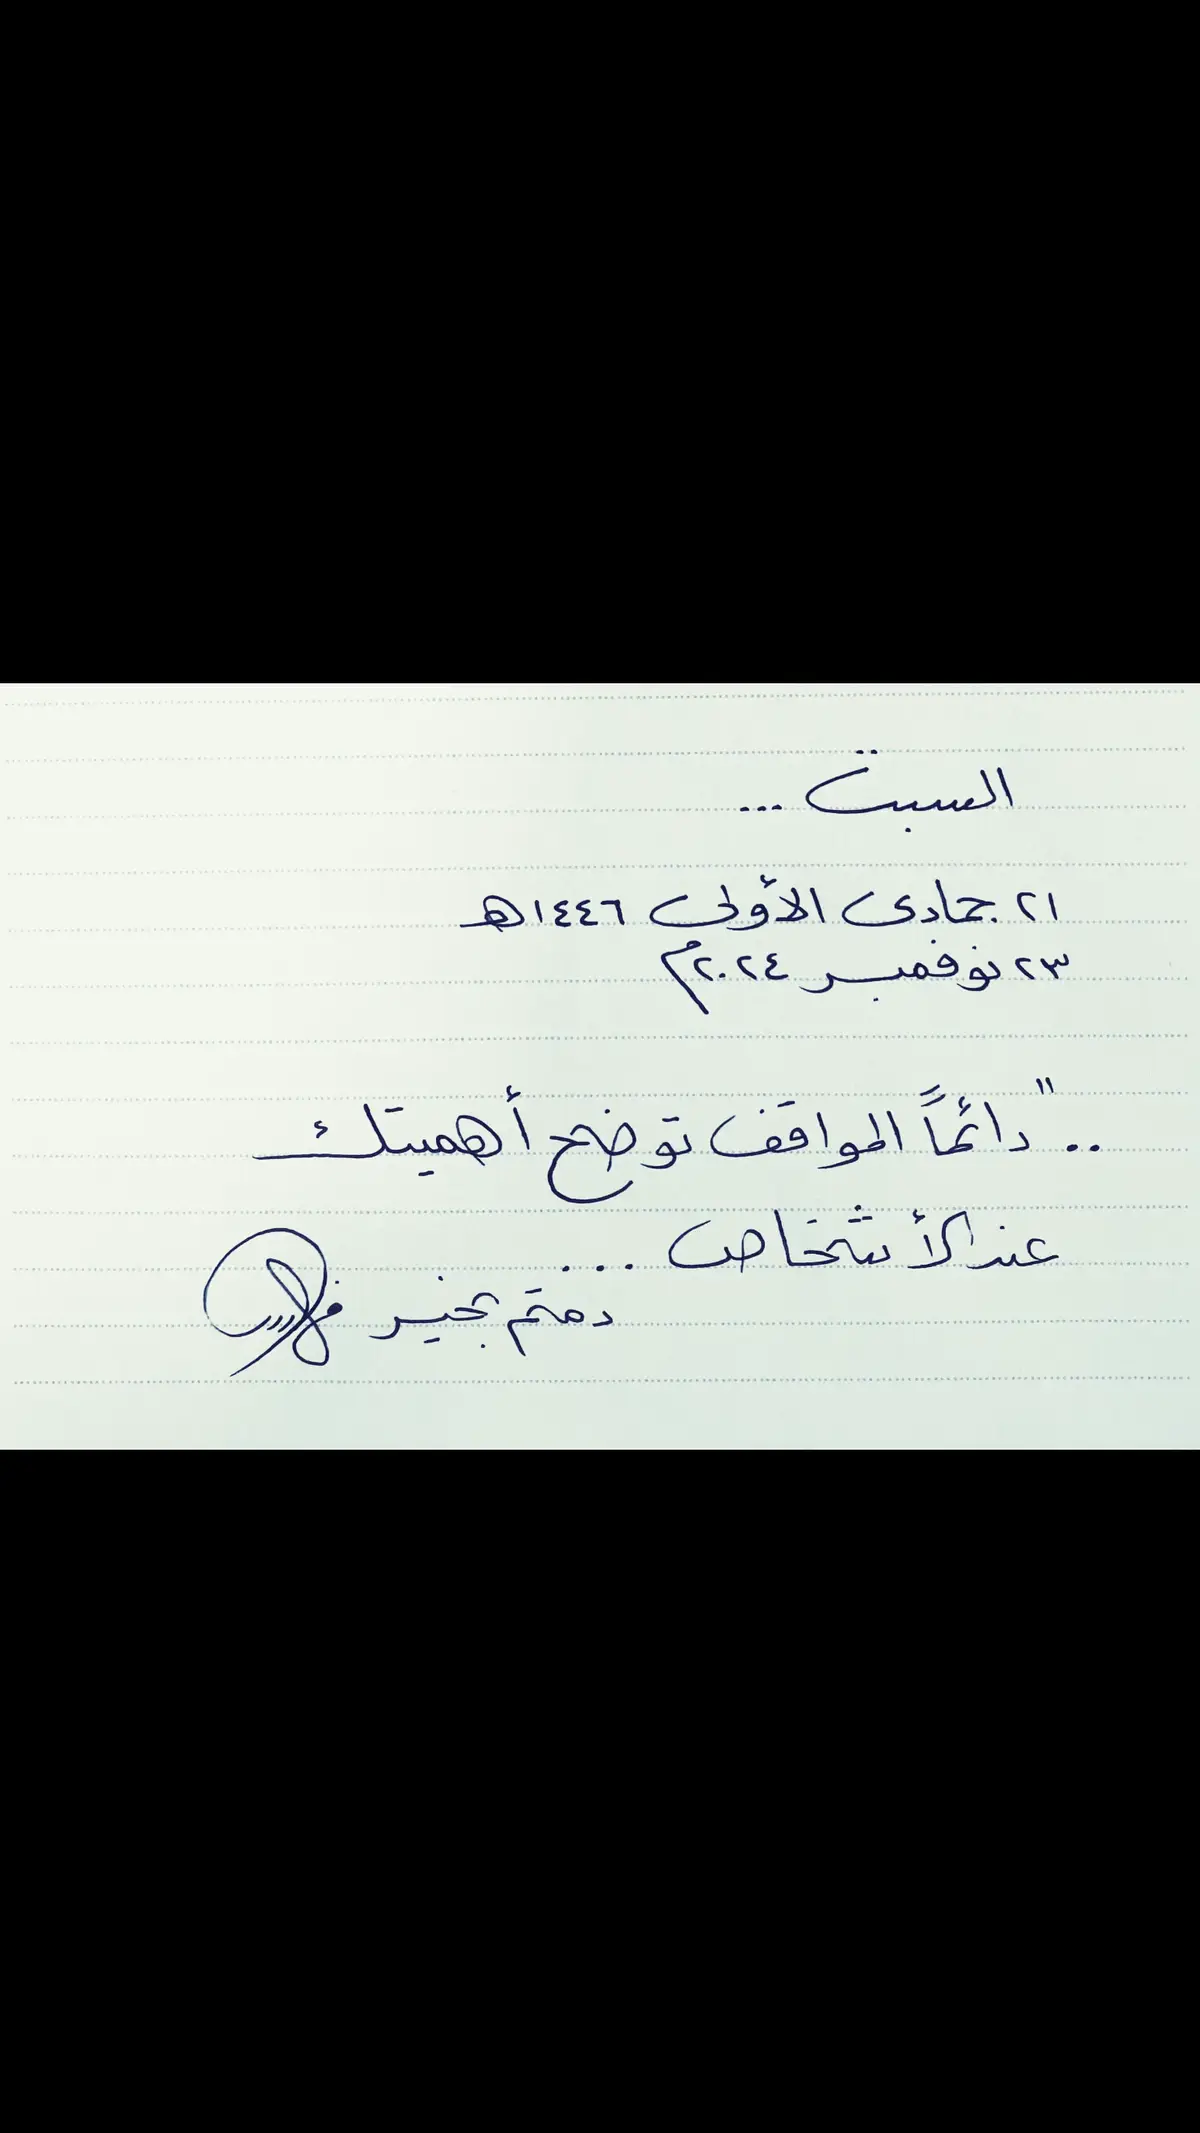 السبت ...
٢١ جمادى الأولى ١٤٤٦هـ
٢٣ نوفمبر ٢٠٢٤م
.. " دائماً المواقف توضح أهميتك
عند الأشخاص ....
دمتم بخير